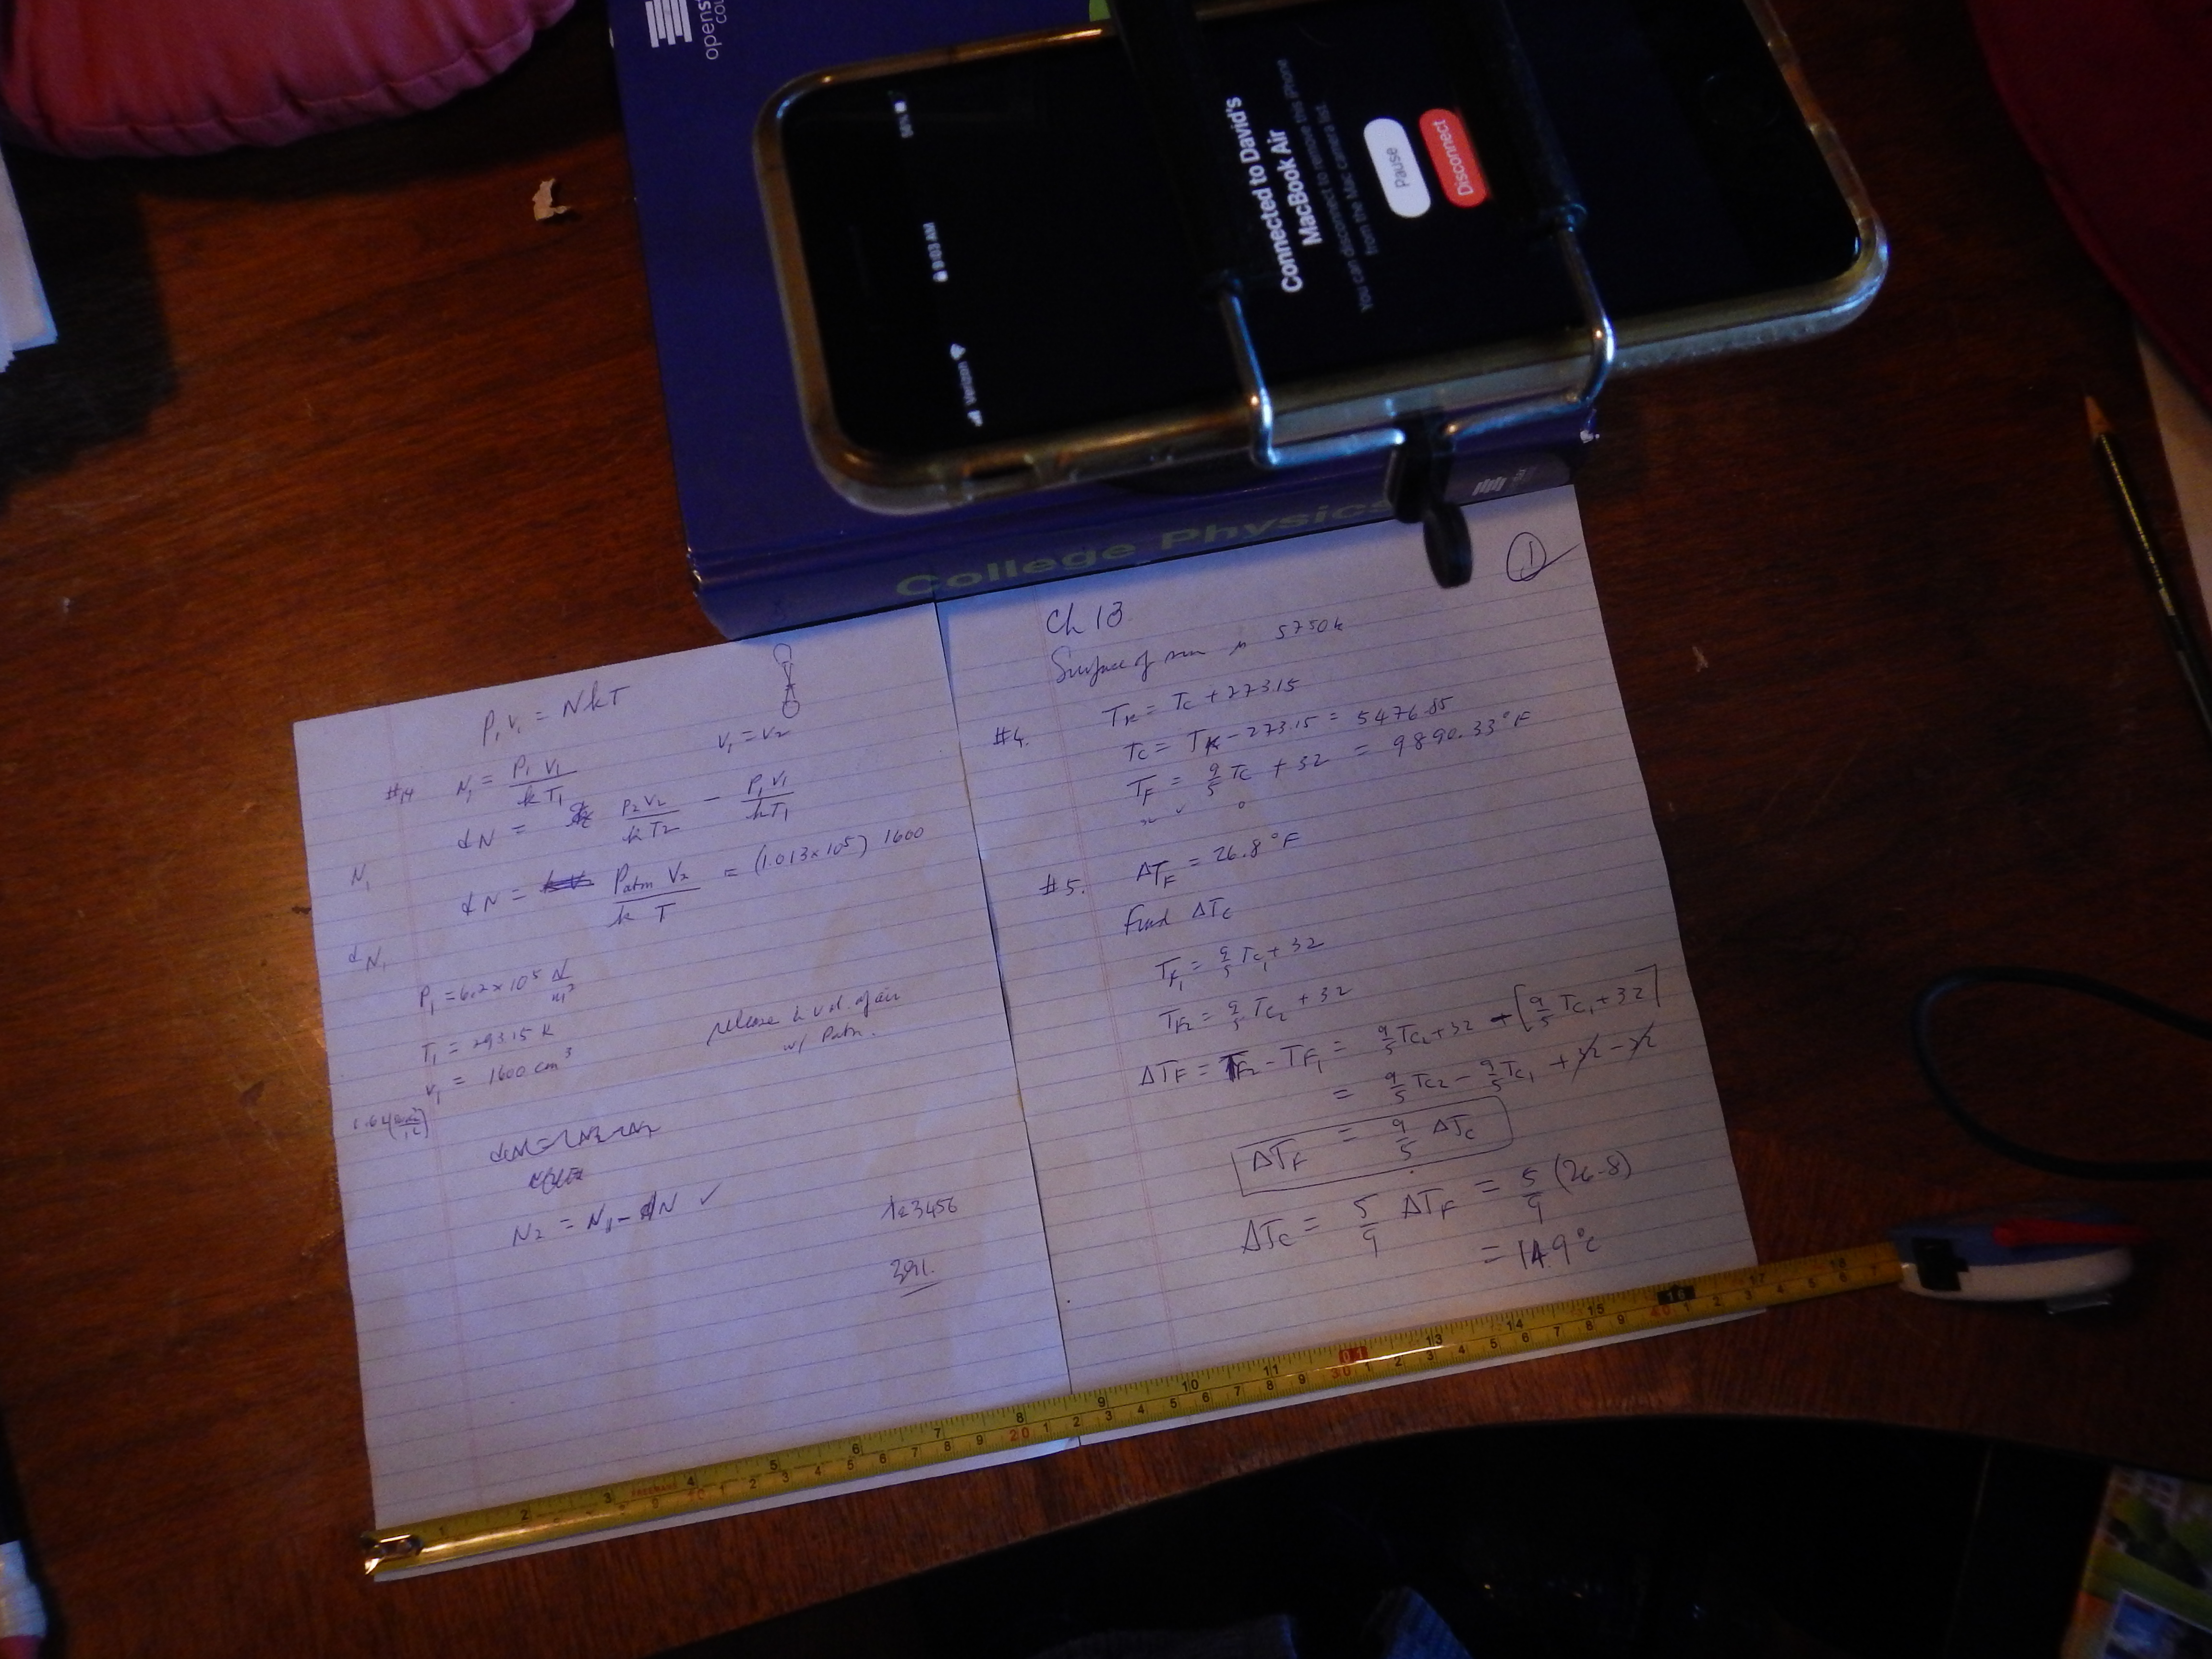 openst
COL
56%
9:03 AM
Verizon
Connected to David's
MacBook Air
You can disconnect to remove this iPhone
from the Mac camera list.
Pause
Disconnect
College Physics
P₁V₁ = NkT
V₁ = V₂
#14 N₁ = P₁ V₁ / k T₁
dN = P₂V₂ / k T₂ - P₁ V₁ / kT₁
N₁
dN = Patm V₂ / k T = (1.013×10⁵) 1600
dN₁
P₁ = 6.2×10⁵ N/m²
T₁ = 293.15 K
V₁ = 1600 cm³
release vol of air
w/ Patm.
N₂ = N₁ - dN ✓
123456
391.
①
Ch 13
Surface of sun is 5750k
#4. TK = TC + 273.15
TC = TK - 273.15 = 5476.85
TF = 9/5 TC + 32 = 9890.33°F
#5. ΔTF = 26.8°F
find ΔTC
TF₁ = 9/5 TC₁ + 32
TF₂ = 9/5 TC₂ + 32
ΔTF = TF₂ - TF₁ = 9/5 TC₂ + 32 - [9/5 TC₁ + 32]
= 9/5 TC₂ - 9/5 TC₁ + 32 - 32
ΔTF = 9/5 ΔTC
ΔTC = 5/9 ΔTF = 5/9 (26.8)
= 14.9°C
1 2 3 4 5 6 7 8 9 10 11 13 14 15 16 17 18